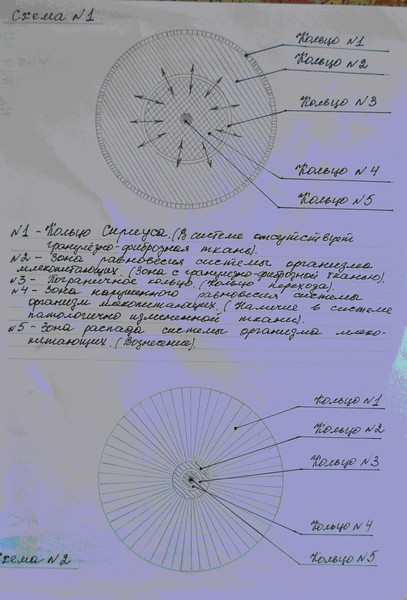 Схема №1
Кольцо №1
Кольцо №2
Кольцо №3
Кольцо №4
Кольцо №5
№1 - Кольцо Сириуса. (В системе отсутствует
гранулёзно-фиброзная ткань).
№2 - Зона равновесия системы организма
млекопитающих. (Зона с гранулезно-фиброзной тканью).
№3 - Пограничное кольцо. (Кольцо перехода).
№4 - Зона нарушенного равновесия системы
организм млекопитающих. (Наличие в системе
патологично измененной ткани).
№5 - Зона распада системы организма млеко-
питающих. (Вознесение).
Кольцо №1
Кольцо №2
Кольцо №3
Кольцо №4
Кольцо №5
Схема №2